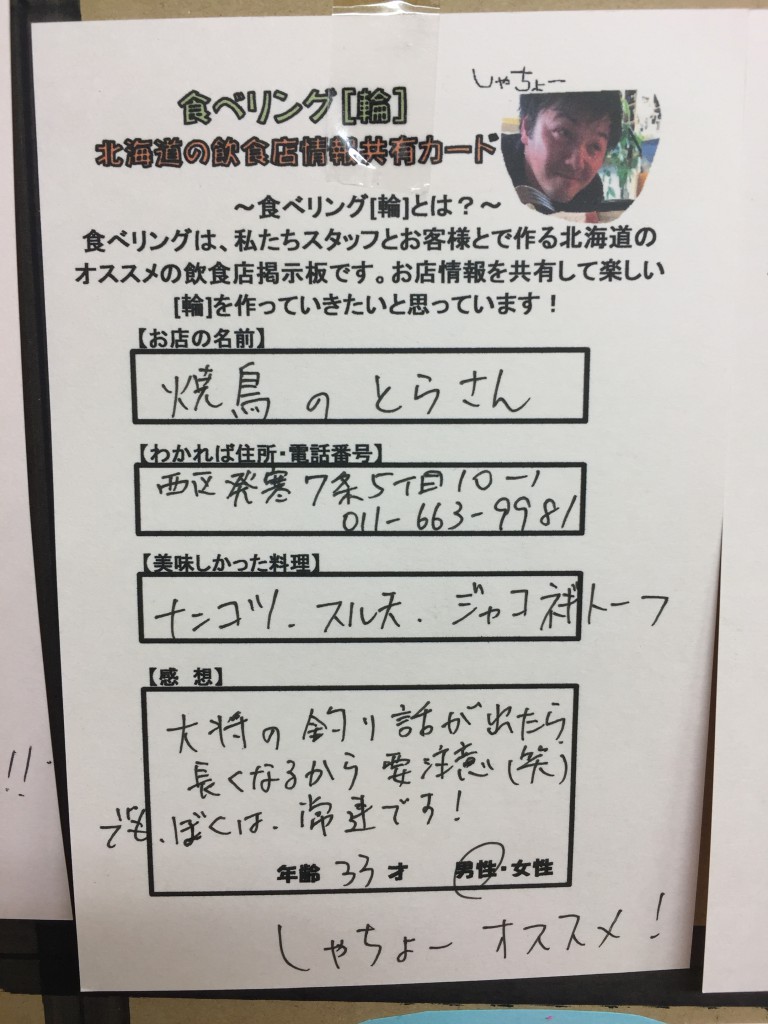 しゃちょー
食べリング[輪]
北海道の飲食店情報共有カード
～食べリング[輪]とは？～
食べリングは、私たちスタッフとお客様とで作る北海道の
オススメの飲食店掲示板です。お店情報を共有して楽しい
[輪]を作っていきたいと思っています！
【お店の名前】
焼鳥のとらさん
【わかれば住所・電話番号】
西区発寒7条5丁目10-1
011-663-9981
【美味しかった料理】
ナンコツ．スル天．ジャコネギトーフ
【感　想】
大将の釣り話が出たら
長くなるから要注意(笑)
でも、ぼくは、常連です！
年齢 33 才 男性・女性
しゃちょー オススメ！
!!